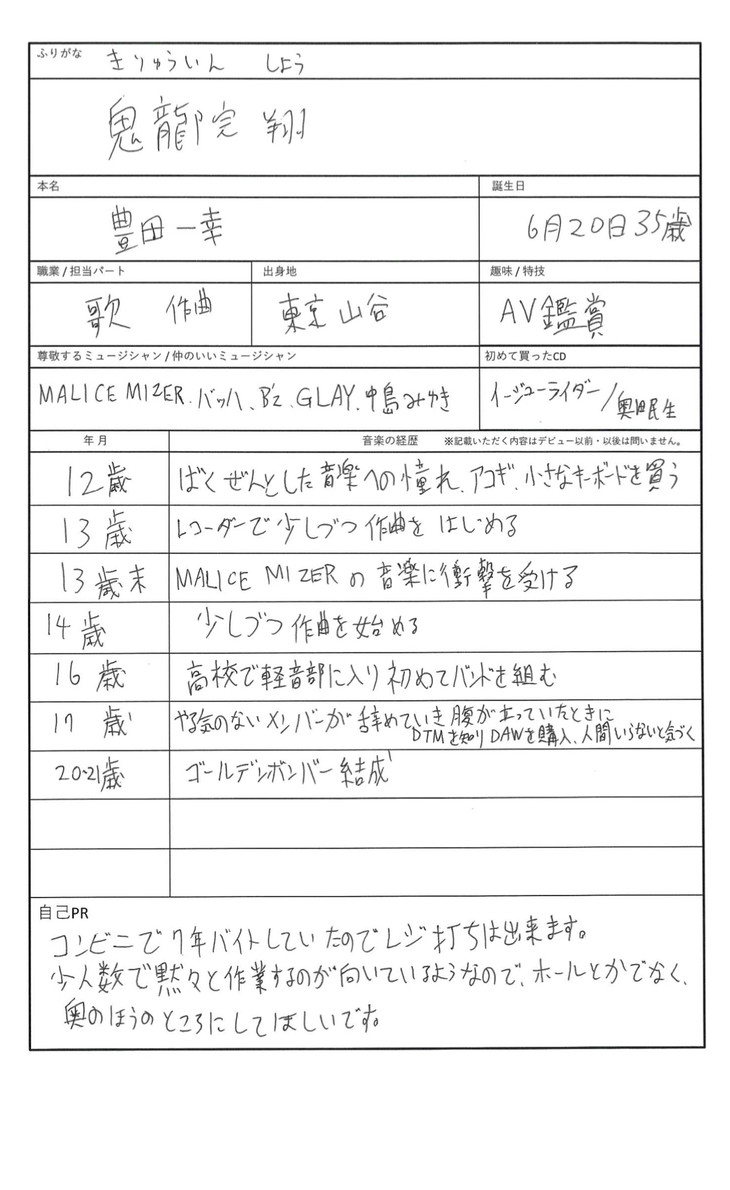 ふりがな きりゅういん しょう
鬼龍院 翔
本名 誕生日
豊田一幸 6月20日35歳
職業/担当パート 出身地 趣味/特技
歌 作曲 東京 山谷 AV鑑賞
尊敬するミュージシャン/仲のいいミュージシャン 初めて買ったCD
MALICE MIZER、バッハ、B'z、GLAY、中島みゆき イージューライダー/奥田民生
年月 音楽の経歴 ※記載いただく内容はデビュー以前・以後は問いません。
12歳 ばくぜんとした音楽への憧れ、アコギ、小さなキーボードを買う
13歳 レコーダーで少しづつ作曲をはじめる
13歳末 MALICE MIZERの音楽に衝撃を受ける
14歳 少しづつ作曲を始める
16歳 高校で軽音部に入り初めてバンドを組む
17歳 やる気のないメンバーが辞めていき腹が立っていたときに
DTMを知りDAWを購入、人間いらないと気づく
20.21歳 ゴールデンボンバー結成
自己PR
コンビニで7年バイトしていたのでレジ打ちは出来ます。
少人数で黙々と作業するのが向いているようなので、ホールとかでなく、
奥のほうのところにしてほしいです。